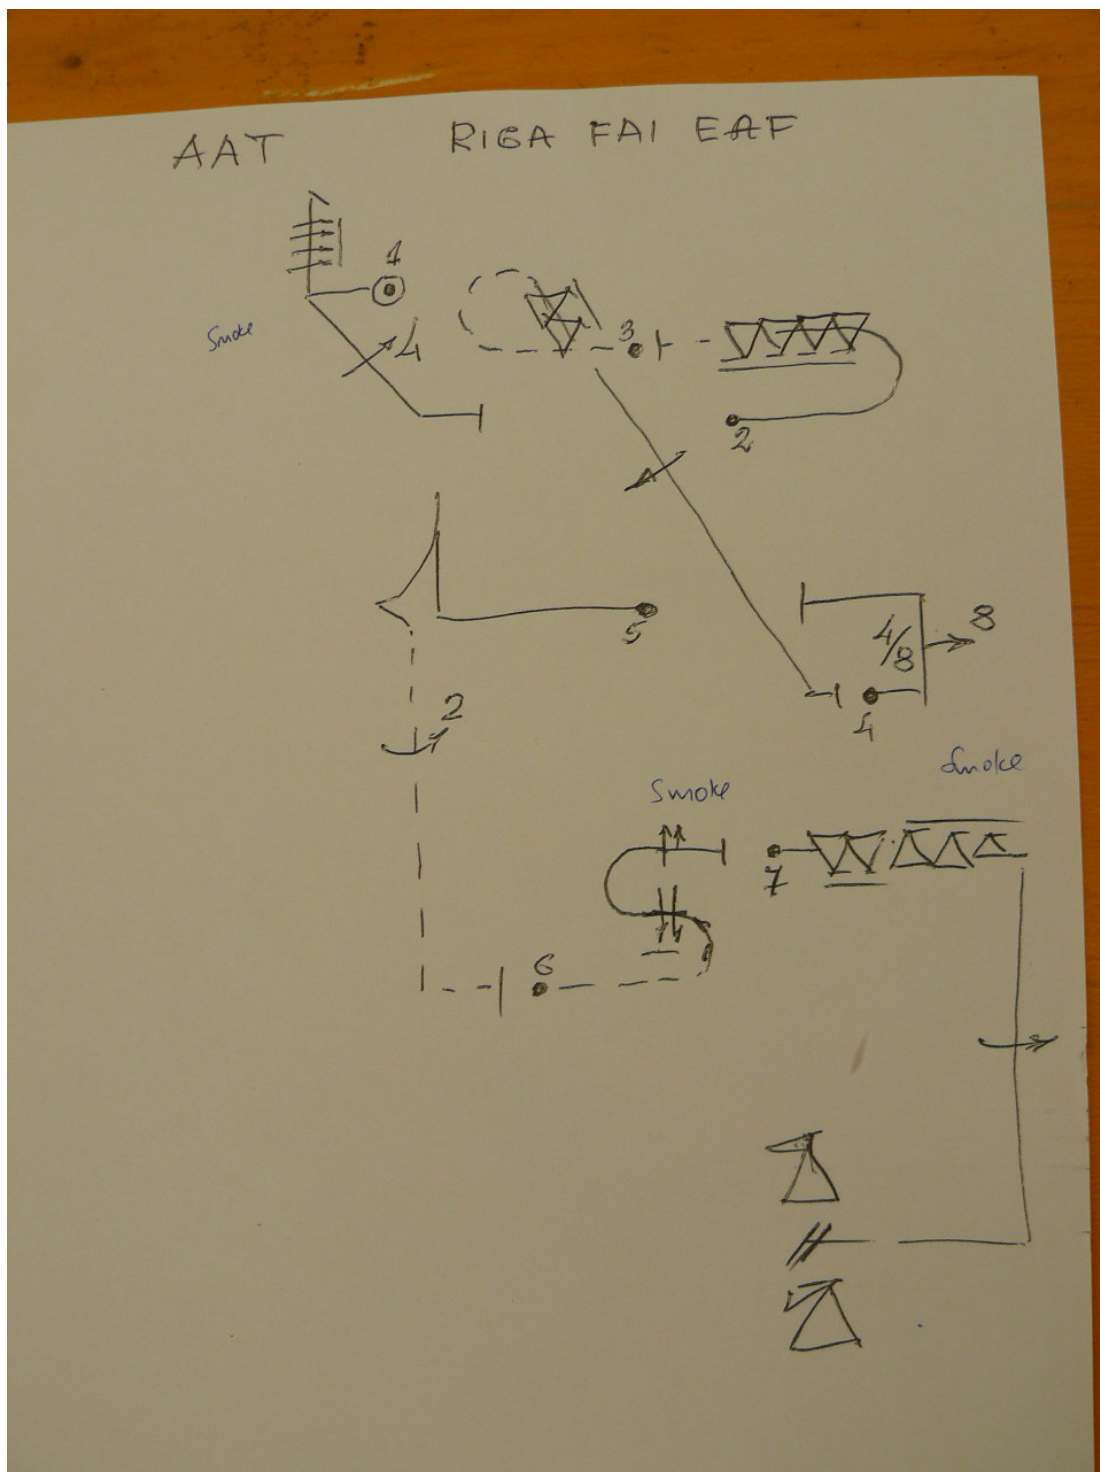 AAT RIGA FAI EAF
1
Smoke
4
3
2
4/8 8
5
4
2
Smoke
Smoke
7
6